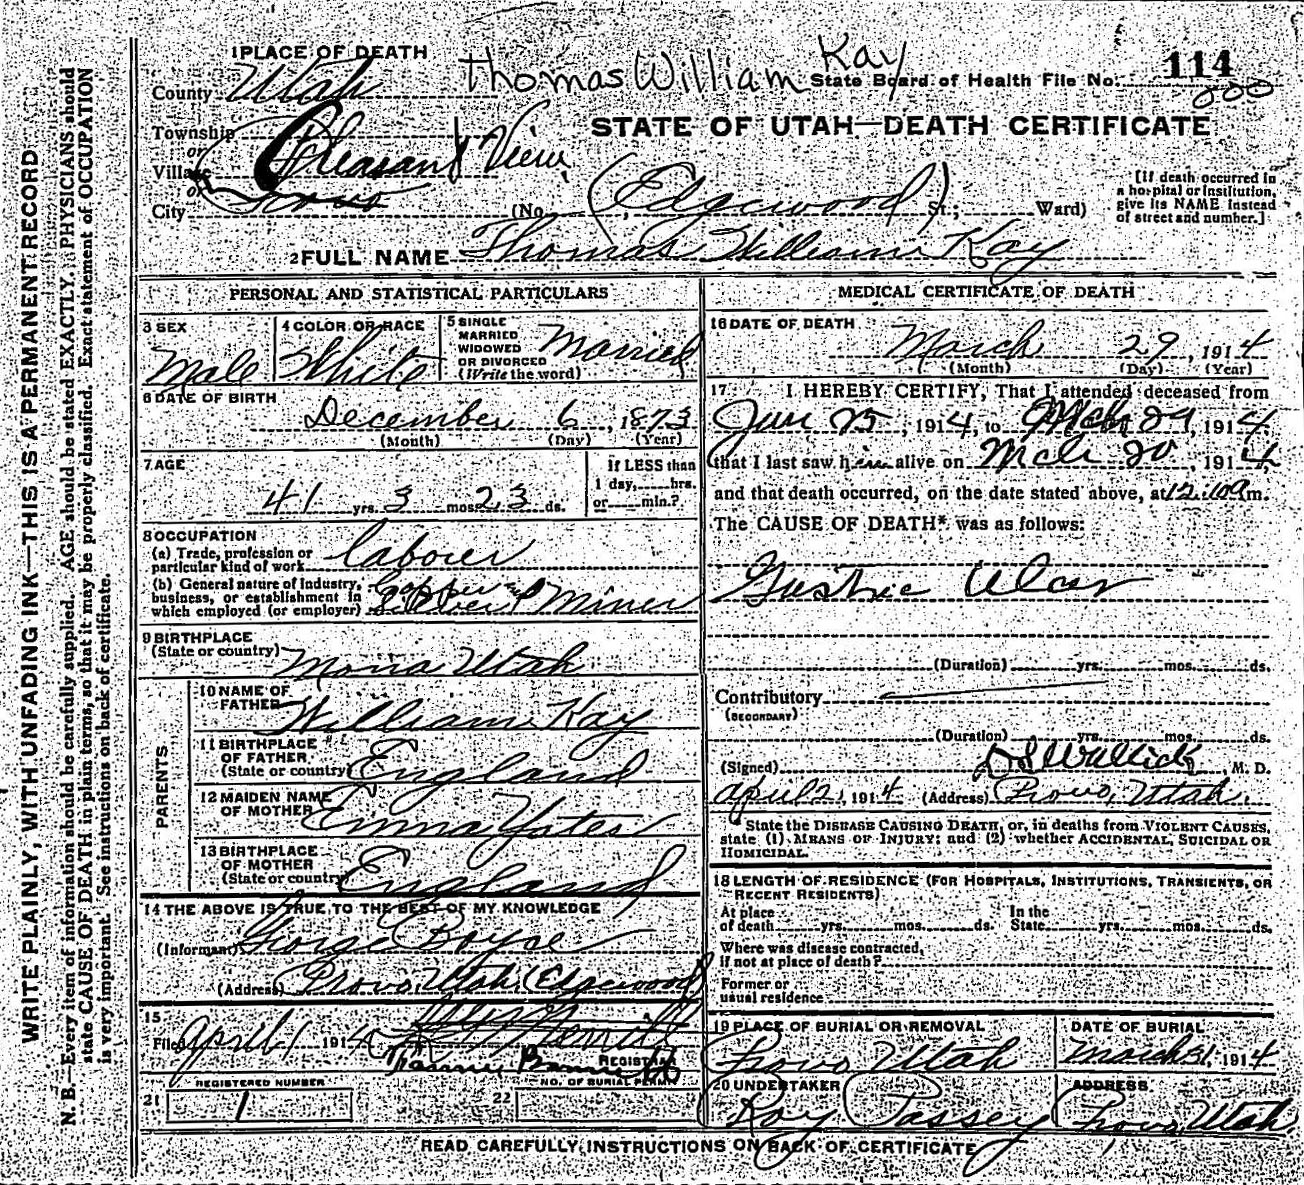 WRITE PLAINLY, WITH UNFADING INK—THIS IS A PERMANENT RECORD
N. B.—Every item of information should be carefully supplied. AGE should be stated EXACTLY. PHYSICIANS should
state CAUSE OF DEATH in plain terms, so that it may be properly classified. Exact statement of OCCUPATION
is very important. See instructions on back of certificate.
1 PLACE OF DEATH
Thomas William Kay
State Board of Health File No. 114
200
County Utah
STATE OF UTAH—DEATH CERTIFICATE
Township
or
Village Pleasant View
or Provo
City (No. (Edgewood) St.; Ward)
[If death occurred in
a hospital or institution,
give its NAME instead
of street and number.]
2 FULL NAME Thomas William Kay
PERSONAL AND STATISTICAL PARTICULARS
3 SEX
Male
4 COLOR OR RACE
White
5 SINGLE
MARRIED
WIDOWED
OR DIVORCED
(Write the word)
Married
6 DATE OF BIRTH
December 6, 1873
(Month) (Day) (Year)
7 AGE
41 yrs. 3 mos. 23 ds.
If LESS than
1 day, hrs.
or min.?
8 OCCUPATION
(a) Trade, profession or
particular kind of work laborer
(b) General nature of industry,
business, or establishment in
which employed (or employer) Copper and Silver Miner
9 BIRTHPLACE
(State or country) Mona Utah
PARENTS
10 NAME OF
FATHER William Kay
11 BIRTHPLACE
OF FATHER
(State or country) England
12 MAIDEN NAME
OF MOTHER Emma Yates
13 BIRTHPLACE
OF MOTHER
(State or country) England
14 THE ABOVE IS TRUE TO THE BEST OF MY KNOWLEDGE
(Informant) George Boyce
(Address) Provo, Utah (Edgewood)
15
Filed April 1 1914
REGISTRAR
REGISTERED NUMBER
21 1
NO. OF BURIAL PERMIT
22
MEDICAL CERTIFICATE OF DEATH
16 DATE OF DEATH
March 29 1914
(Month) (Day) (Year)
17 I HEREBY CERTIFY, That I attended deceased from
Jan 25, 1914, to Mch 29, 1914
that I last saw him alive on Mch 20, 1914
and that death occurred, on the date stated above, at 12:10 a m.
The CAUSE OF DEATH* was as follows:
Gastric Ulcer
(Duration) yrs. mos. ds.
Contributory
(SECONDARY)
(Duration) yrs. mos. ds.
(Signed) Wallick M. D.
April 2, 1914 (Address) Provo, Utah.
*State the DISEASE CAUSING DEATH, or, in deaths from VIOLENT CAUSES,
state (1) MEANS OF INJURY; and (2) whether ACCIDENTAL, SUICIDAL OR
HOMICIDAL.
18 LENGTH OF RESIDENCE (FOR HOSPITALS, INSTITUTIONS, TRANSIENTS, OR
RECENT RESIDENTS)
At place
of death yrs. mos. ds.
In the
State yrs. mos. ds.
Where was disease contracted,
if not at place of death?
Former or
usual residence
19 PLACE OF BURIAL OR REMOVAL
Provo Utah
DATE OF BURIAL
March 31, 1914
20 UNDERTAKER
Roy Passey
ADDRESS
Provo Utah
READ CAREFULLY INSTRUCTIONS ON BACK OF CERTIFICATE